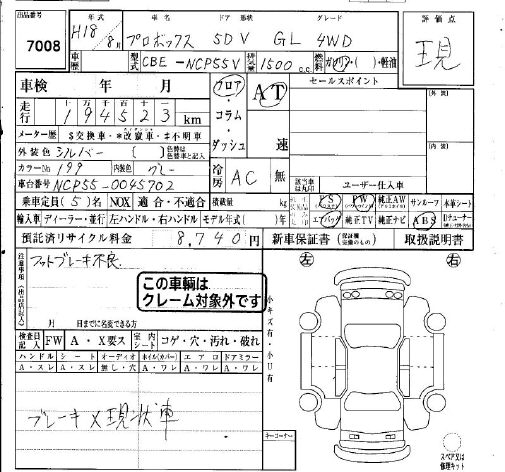 出品番号 年式 車名 ドア 形状 グレード 評価点
7008 H18 8月 プロボックス 5DV GL 4WD 現
車歴 型式 CBE-NCP55V 排気量 1500 c.c. 燃料 ガソリン・軽油
車検 年 月 フロア・コラム・ダッシュ AT 速 セールスポイント
走行 十万千百十一
194523 km
メーター歴 $交換車・*改竄車・#不明車
外装色 シルバー 色替は色替車名と記入
カラーNo 199 内装色 グレー 冷房 AC 無 該当車は丸印 ユーザー仕入車
車台番号 NCP55-0045702
乗車定員 (5)名 NOX 適合・不適合 積載量 kg PS PW 純正AW サンルーフ 本革シート
輸入車 ディーラー・並行 左ハンドル・右ハンドル モデル年式( )年 エアバッグ 純正TV 純正ナビ ABS Dチューナー
預託済リサイクル料金 8,740円 新車保証書 取扱説明書
注意事項(出品店記入)
フットブレーキ不良
この車輌は
クレーム対象外です
左 右
月 日までに名変できる方
小キズ有・小U有
検査員記入 FW A・X要ス 室内シート コゲ・穴・汚れ・破れ
ハンドル シート オーディオ ホイル(カバー) エアロ ドアミラー
A・スレ A・スレ 無し・穴 A・ワレ A・ワレ A・ワレ
ブレーキ×現状車
キーコーナー
スペア又は
修理キット